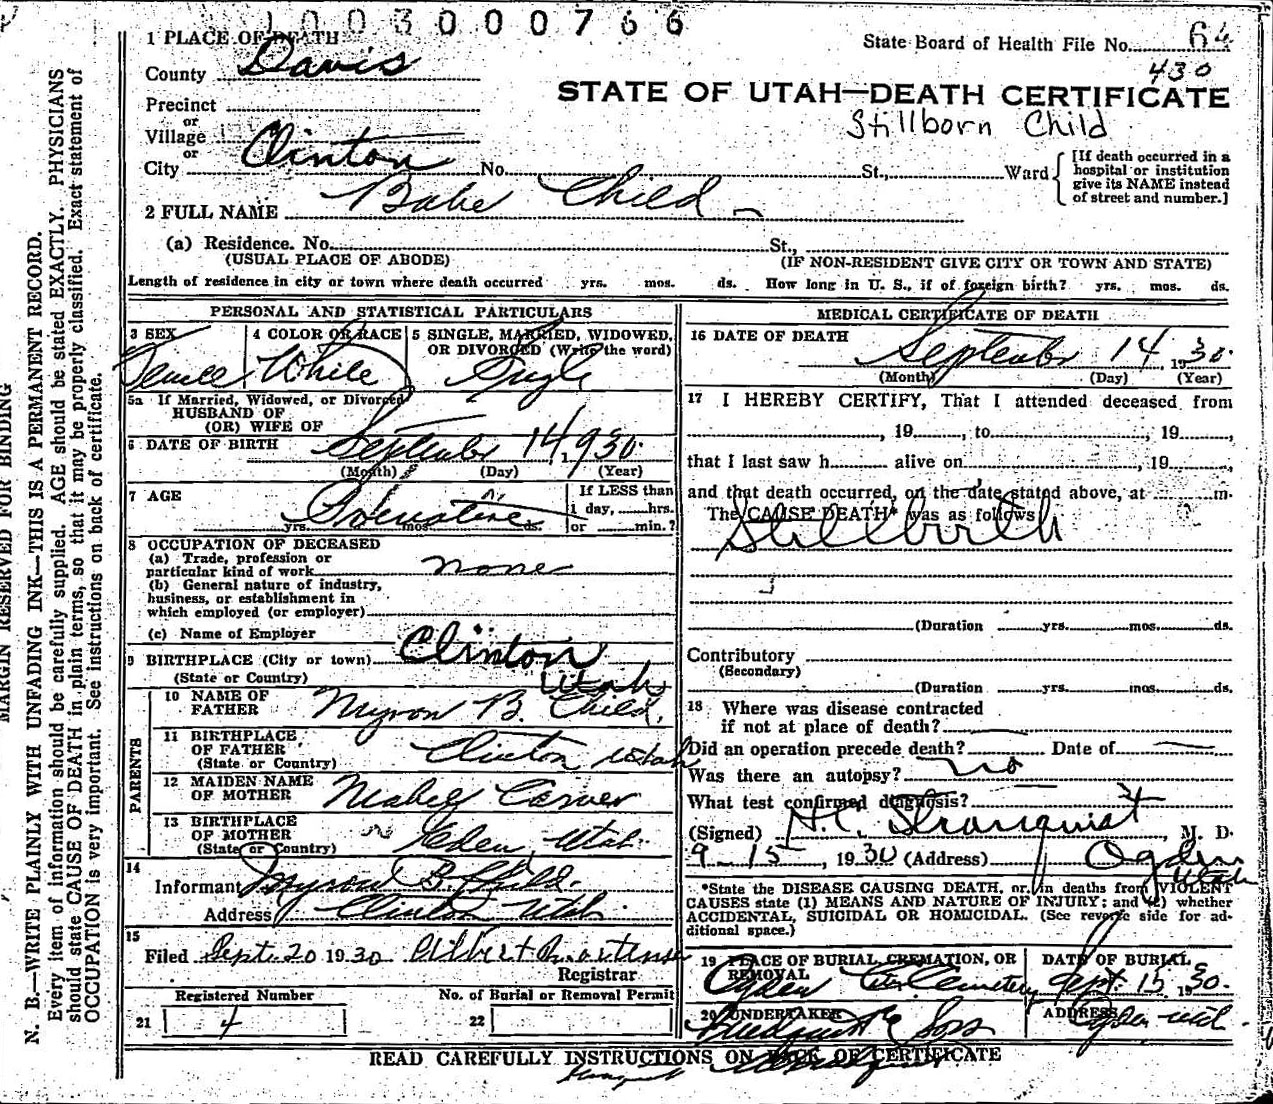 1003000766
1 PLACE OF DEATH
State Board of Health File No. 64
430
County Davis
STATE OF UTAH—DEATH CERTIFICATE
Stillborn Child
Precinct
or
Village
or
City Clinton No. St., Ward
[If death occurred in a
hospital or institution
give its NAME instead
of street and number.]
2 FULL NAME Babe Child
(a) Residence. No. St.,
(USUAL PLACE OF ABODE) (IF NON-RESIDENT GIVE CITY OR TOWN AND STATE)
Length of residence in city or town where death occurred yrs. mos. ds. How long in U. S., if of foreign birth? yrs. mos. ds.
PERSONAL AND STATISTICAL PARTICULARS
3 SEX 4 COLOR OR RACE 5 SINGLE, MARRIED, WIDOWED,
OR DIVORCED (Write the word)
White Single
5a If Married, Widowed, or Divorced
HUSBAND OF
(OR) WIFE OF
6 DATE OF BIRTH September 14, 1930
(Month) (Day) (Year)
7 AGE If LESS than
1 day, hrs.
yrs. mos. ds. or min.?
8 OCCUPATION OF DECEASED
(a) Trade, profession or
particular kind of work none
(b) General nature of industry,
business, or establishment in
which employed (or employer)
(c) Name of Employer
9 BIRTHPLACE (City or town) Clinton
(State or Country) Utah
PARENTS
10 NAME OF
FATHER Myron B. Child.
11 BIRTHPLACE
OF FATHER Clinton Utah
(State or Country)
12 MAIDEN NAME
OF MOTHER Mabel Carver
13 BIRTHPLACE
OF MOTHER Eden, Utah.
(State or Country)
14
Informant Myron B. Child.
Address Clinton Utah
15
Filed Sept. 20 1930
Registrar
Registered Number No. of Burial or Removal Permit
21 4 22
MEDICAL CERTIFICATE OF DEATH
16 DATE OF DEATH
September 14 1930.
(Month) (Day) (Year)
17 I HEREBY CERTIFY, That I attended deceased from
, 19 , to , 19 ,
that I last saw h alive on , 19 ,
and that death occurred, on the date stated above, at m.
The CAUSE DEATH* was as follows
Stillbirth
(Duration yrs. mos. ds.
Contributory
(Secondary)
(Duration yrs. mos. ds.
18 Where was disease contracted
if not at place of death?
Did an operation precede death? Date of
Was there an autopsy? no
What test confirmed diagnosis?
(Signed) H.C. Stranquist, M. D.
9-15, 1930 (Address) Ogden
Utah
*State the DISEASE CAUSING DEATH, or, in deaths from VIOLENT
CAUSES state (1) MEANS AND NATURE OF INJURY; and (2) whether
ACCIDENTAL, SUICIDAL OR HOMICIDAL. (See reverse side for ad-
ditional space.)
19 PLACE OF BURIAL, CREMATION, OR DATE OF BURIAL
REMOVAL
Ogden City Cemetery Sept. 15 1930.
20 UNDERTAKER ADDRESS
& Sons Ogden Utah.
READ CAREFULLY INSTRUCTIONS ON BACK OF CERTIFICATE
MARGIN RESERVED FOR BINDING
N. B.—WRITE PLAINLY WITH UNFADING INK—THIS IS A PERMANENT RECORD.
Every item of information should be carefully supplied. AGE should be stated EXACTLY. PHYSICIANS
should state CAUSE OF DEATH in plain terms, so that it may be properly classified. Exact statement of
OCCUPATION is very important. See Instructions on back of certificate.